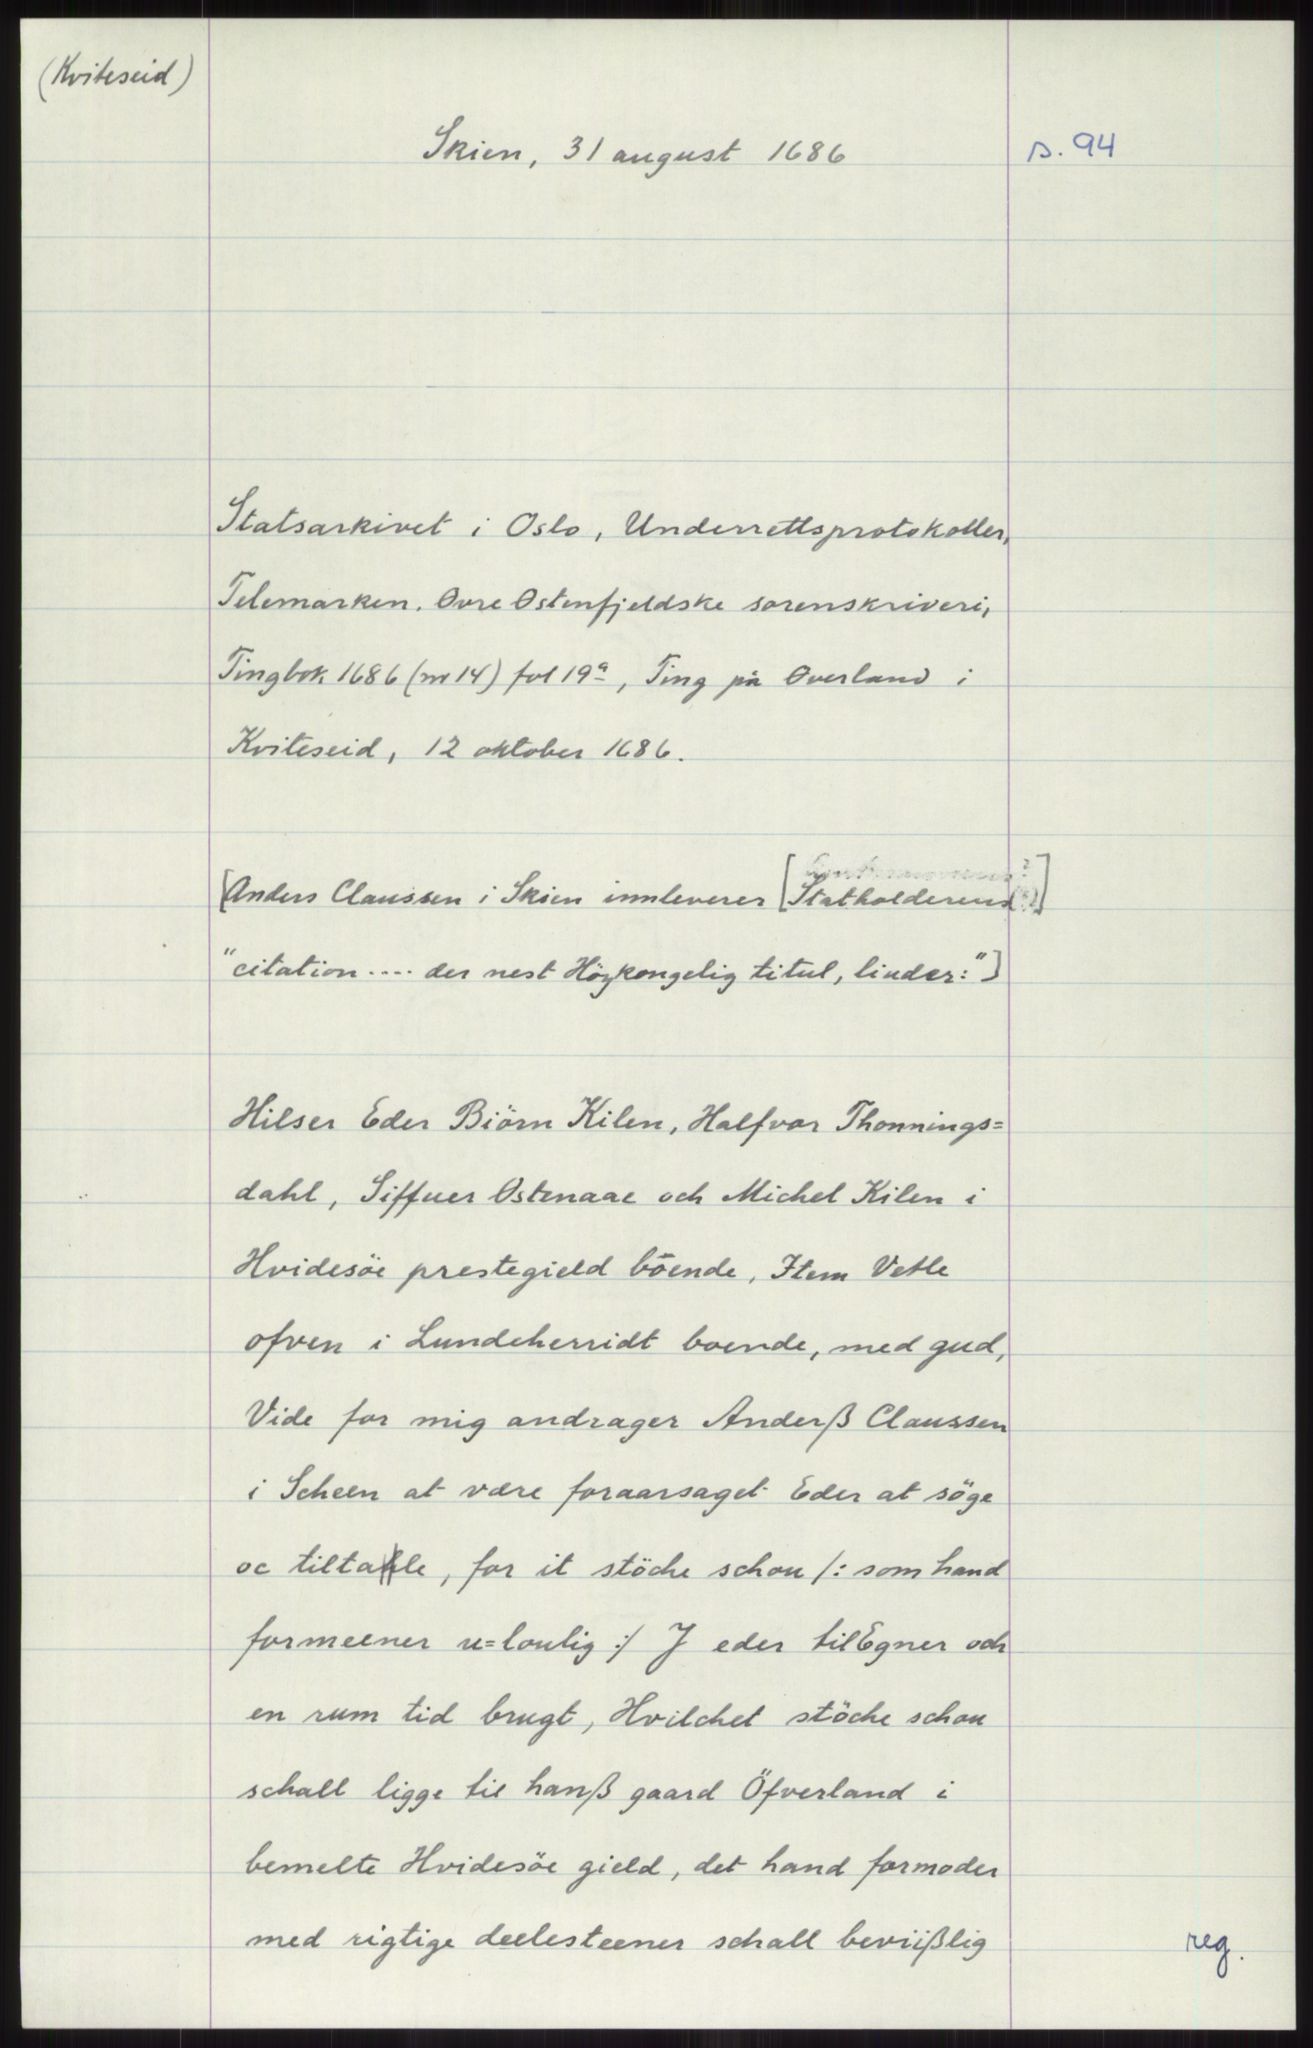 (Kviteseid)
Skien, 31 august 1686
s. 94
Statsarkivet i Oslo, Underrettsprotokoller,
Telemarken. Øvre Østenfjeldske sorenskriveri,
Tingbok 1686 (nr 14) fol 19a, Ting på Øverland i
Kviteseid, 12 oktober 1686.
[Anders Claussen i Skien innleverer [Statholderens (?)]
"citation .... der nest Höykongelig titul, liuder:"]
Hilser Eder Biörn Kilen, Halfvor Thonnings=
dahl, Siffuer Ostenaae och Michel Kilen i
Hvidesöe prestegield böende, Item Vetle
ofven i Lundeherridt boende, med gud,
Vide for mig andrager Anderß Claussen
i Scheen at være foraarsaget Eder at söge
oc tiltalle, for it stöche schou /: som hand
formeener u=loulig :/ J eder tilEgner och
en rum tid brugt, Hvilchet stöche schou
schall ligge til hanß gaard Öfverland i
bemelte Hvidesöe gield, det hand formoder
med rigtige deelesteener schall beviißlig
reg.